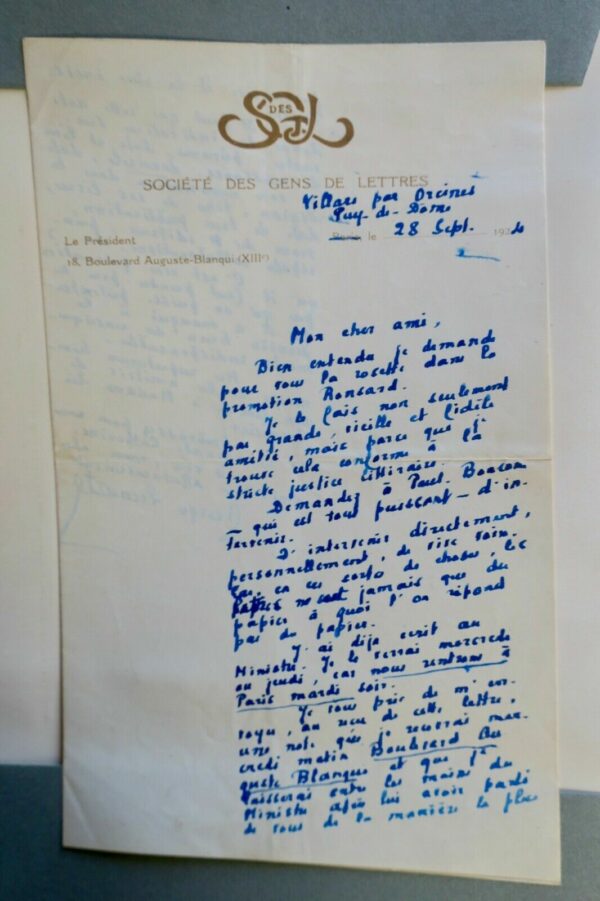 S DES G L
SOCIÉTÉ DES GENS DE LETTRES
Villars par Orcines
Puy-de-Dôme
Le Président
Paris, le 28 Sept. 192
18, Boulevard Auguste-Blanqui (XIIIe)
Mon cher ami,
Bien entendu je demande
pour vous la rosette dans la
promotion Ronsard.
Je le fais non seulement
par grande, vieille et fidèle
amitié, mais parce que je
trouve cela conforme à la
stricte justice littéraire.
Demandez à Paul-Boncour
— qui est tout puissant — d'in-
tervenir.
D'intervenir directement,
personnellement, de vive voix.
Car, en ces sortes de choses, les
lettres ne sont jamais que du
papier à quoi l'on répond
par du papier.
J'ai déjà écrit au
Ministre. Je le verrai mercredi
ou jeudi, car nous rentrons à
Paris mardi soir.
Je vous prie de m'en-
voyer, au reçu de cette lettre,
une note que je recevrai mer-
credi matin Boulevard Au-
guste Blanqui et que je
laisserai entre les mains du
Ministre après lui avoir parlé
de vous de la manière la plus